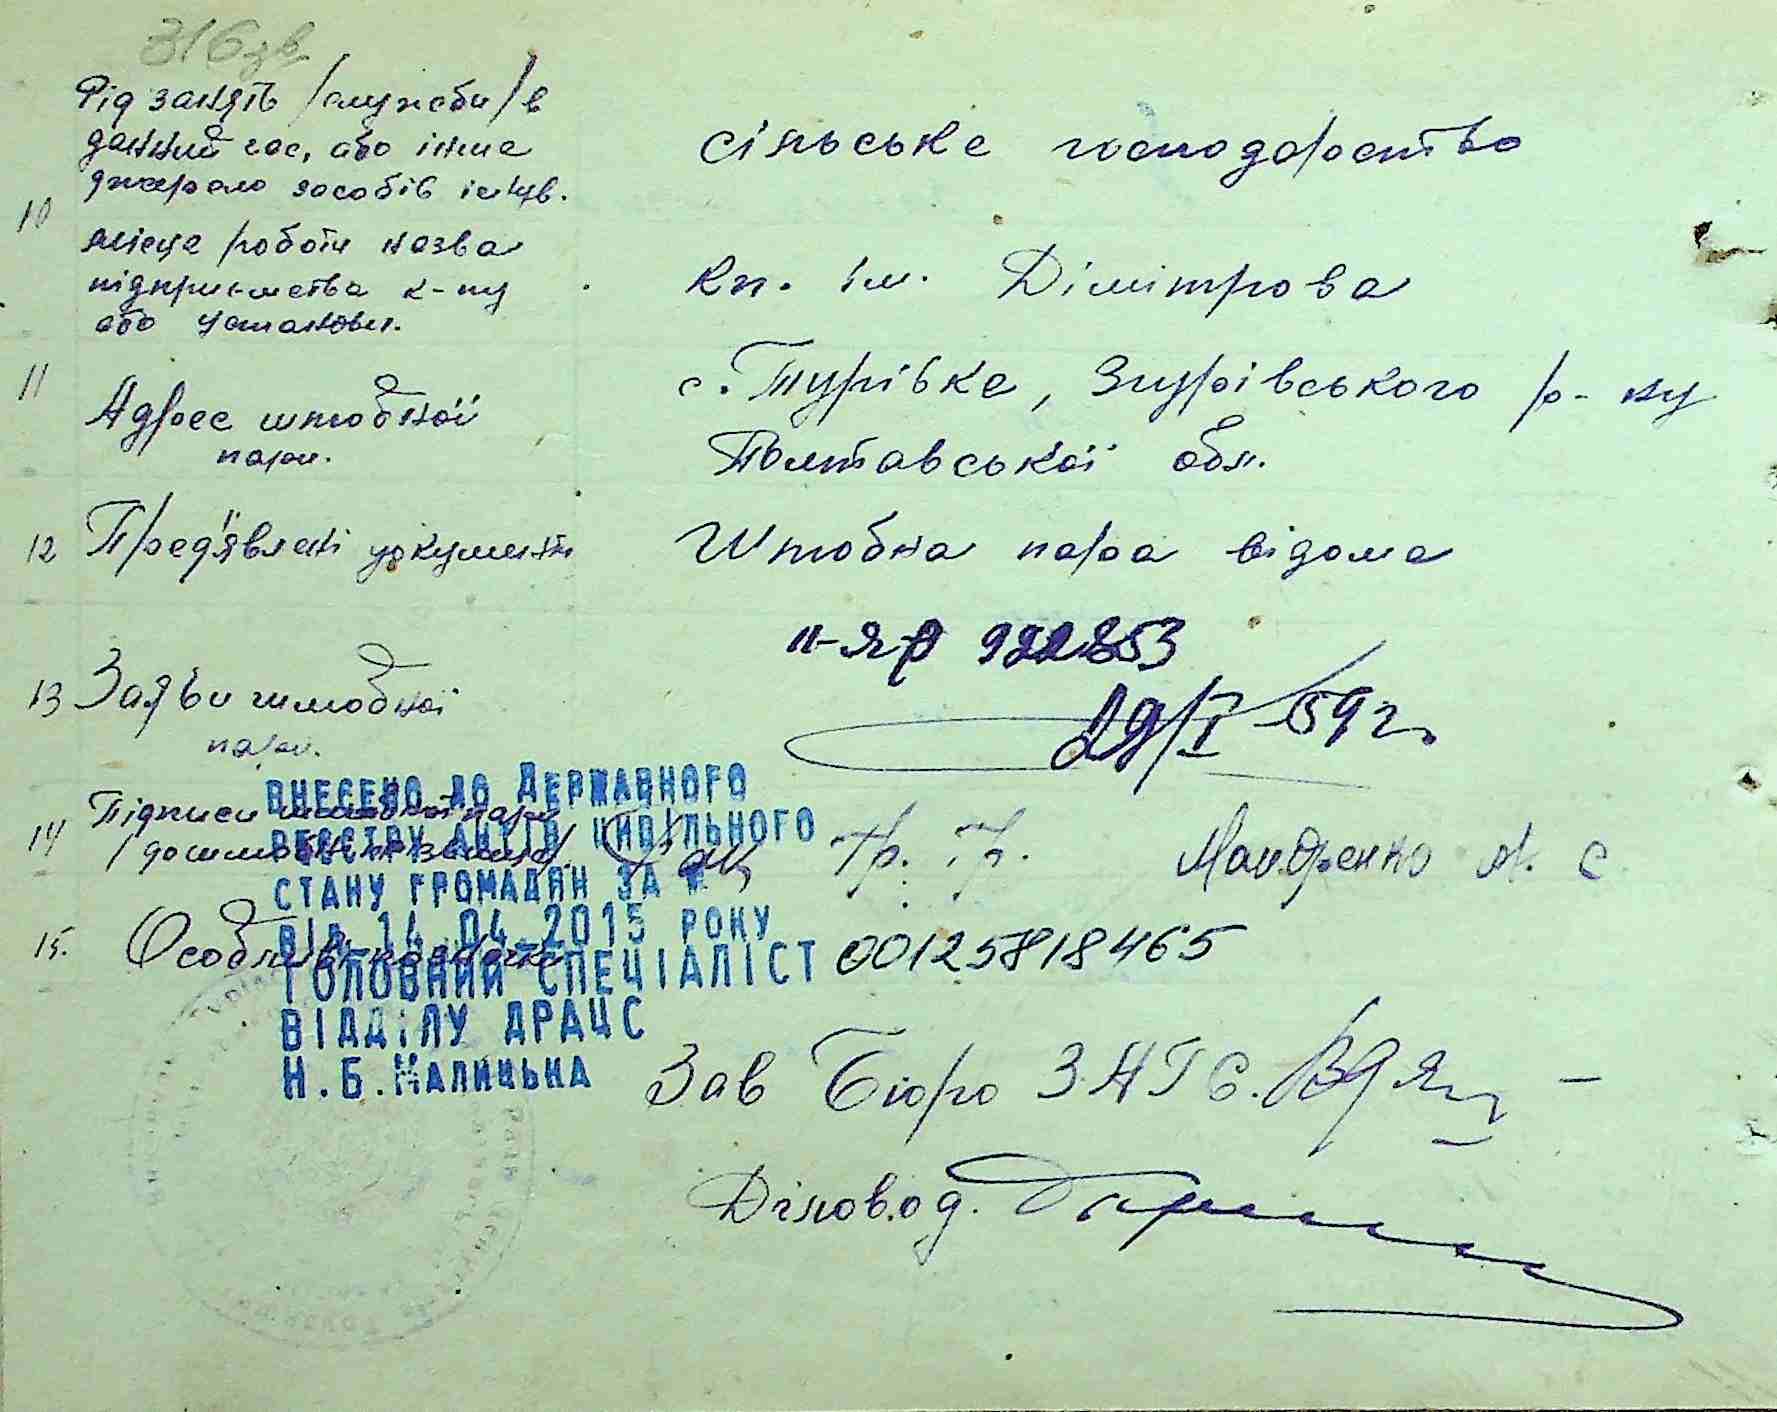 316зв
Рід занять /служби/ в
данний час, або інше
джерело засобів існув.
сільське господарство
10
місце роботи назва
підприємства к-пу
або установи.
кп. ім. Дімітрова
11
Адрес шлюбної
пари.
с. Турівке, Згурівського р-ну
Полтавської обл.
12 Пред'явлені документи
Шлюбна пара відома
II-ЯР 922853
29/I-59 г.
13 Заяви шлюбної
пари.
14 Підписи шлюбної пари
/дошлюбні прізвища/.
Гр. Гр.
15. Особливі
ВНЕСЕНО ДО ДЕРЖАВНОГО
РЕЄСТРУ АКТІВ ЦИВІЛЬНОГО
СТАНУ ГРОМАДЯН ЗА №
ВІД 14.04.2015 РОКУ
ГОЛОВНИЙ СПЕЦІАЛІСТ
ВІДДІЛУ ДРАЦС
Н.Б.МАЛИЦЬКА
00125818465
Зав Бюро ЗАГС.
Діловод.